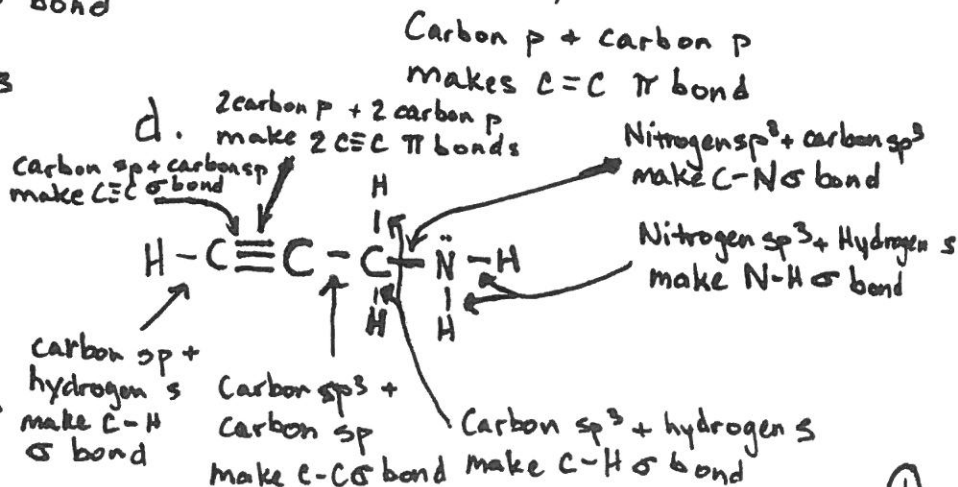 bond
Carbon p + carbon p
makes C=C π bond
3
d.
2carbon p + 2 carbon p
make 2 C≡C π bonds
carbon sp + carbon sp
make C≡C σ bond
Nitrogen sp³ + carbon sp³
make C-N σ bond
H
H-C≡C-C-N̈-H
H H
Nitrogen sp³ + Hydrogen s
make N-H σ bond
carbon sp +
hydrogen s
make C-H
σ bond
Carbon sp³ +
carbon sp
make C-C σ bond
Carbon sp³ + hydrogen s
make C-H σ bond